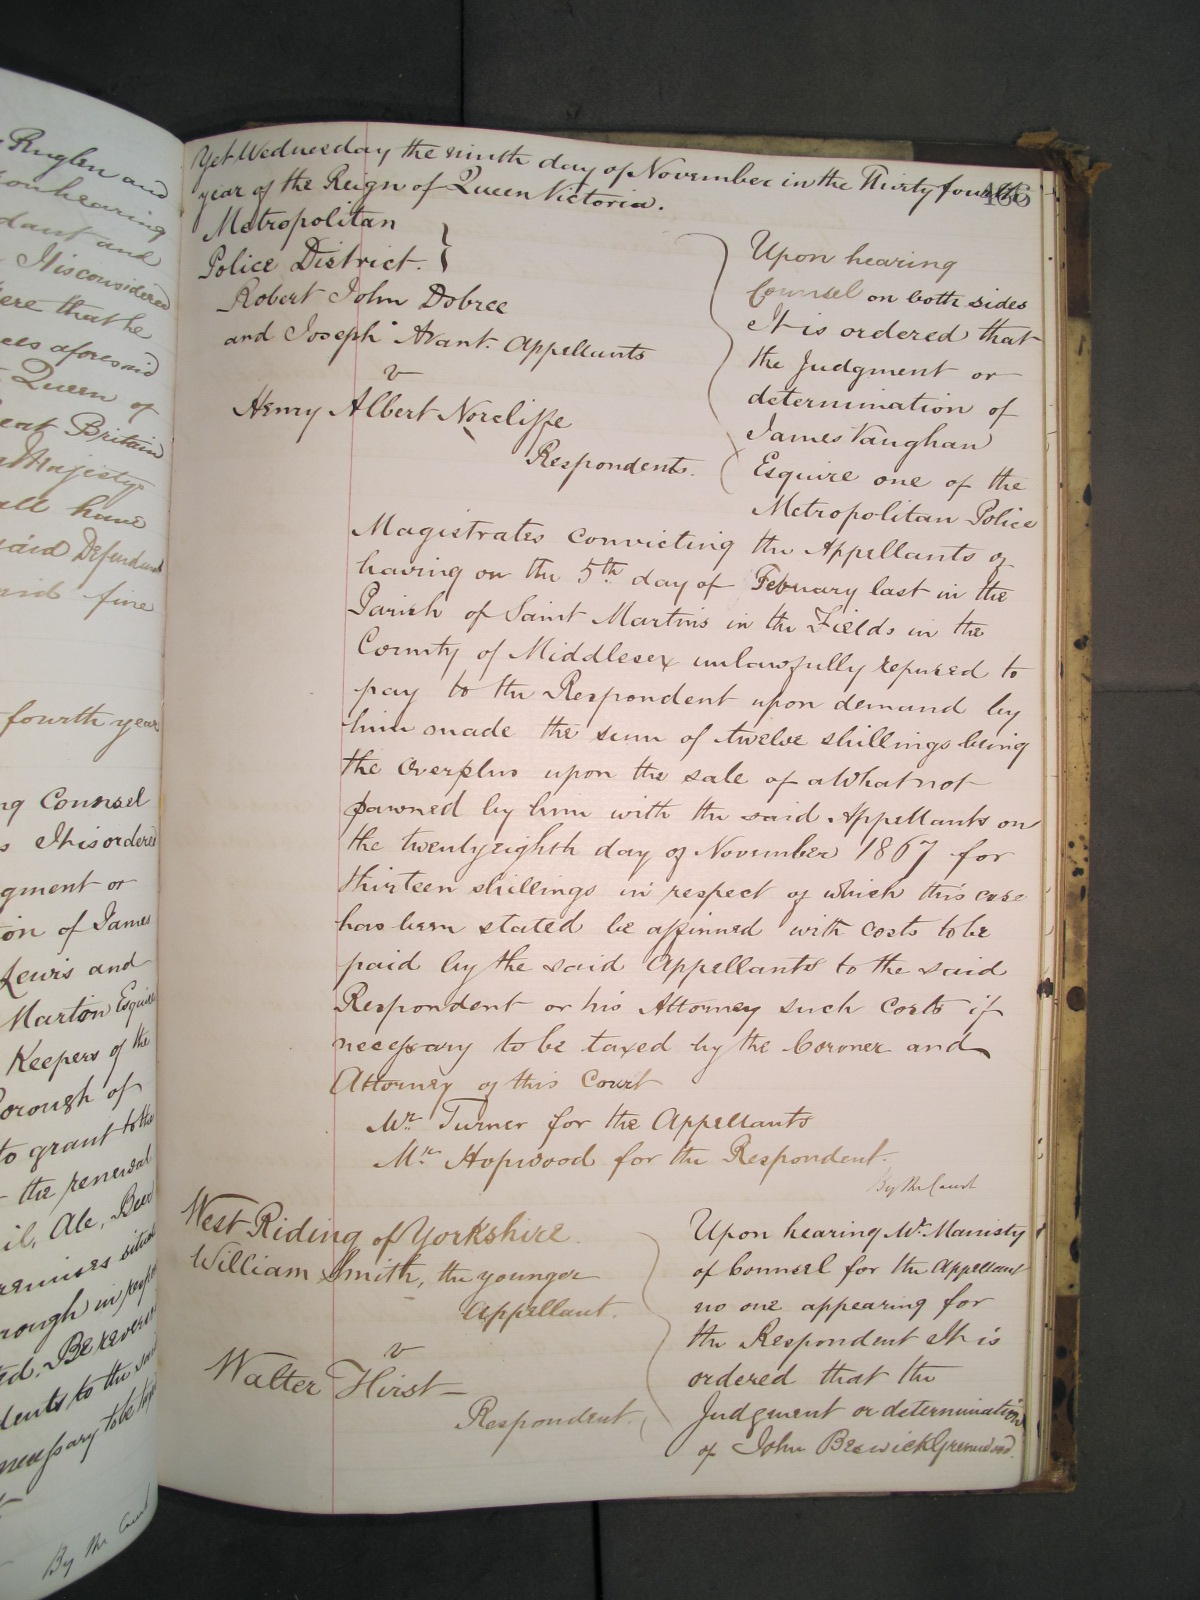 Ruglen and
on hearing
dant and
It is considered
ere that he
ees aforesaid
Queen of
eat Britain
Majesty
all have
said Defendant
fine
fourth year
ng Counsel
s It is ordered
gment or
on of James
Lewis and
Marton Esquire
Keepers of the
orough of
to grant to the
the renewal
il, Ale, Beer
remises situate
rough in respect
ed. Be reversed
dents to the said
necessary to be
By the Court
Yet Wednesday the ninth day of November in the Thirty fourth 466
year of the Reign of Queen Victoria.
Metropolitan
Police District.
Robert John Dobree
and Joseph Avant. Appellants
v
Henry Albert Norcliffe
Respondent.
Upon hearing
Counsel on both sides
It is ordered that
the Judgment or
determination of
James Vaughan
Esquire one of the
Metropolitan Police
Magistrates convicting the Appellants of
having on the 5th day of February last in the
Parish of Saint Martins in the Fields in the
County of Middlesex unlawfully refused to
pay to the Respondent upon demand by
him made the sum of twelve shillings being
the overplus upon the sale of a Whatnot
pawned by him with the said Appellants on
the twenty eighth day of November 1867 for
thirteen shillings in respect of which this case
has been stated be affirmed with costs to be
paid by the said Appellants to the said
Respondent or his Attorney such costs if
necessary to be taxed by the Coroner and
Attorney of this Court
Mr. Turner for the Appellants
Mr. Hopwood for the Respondent.
By the Court
West Riding of Yorkshire.
William Smith, the younger
Appellant.
v
Walter Hirst
Respondent.
Upon hearing Mr. Manisty
of Counsel for the Appellant
no one appearing for
the Respondent It is
ordered that the
Judgment or determination
of John Beswick Greenwood.